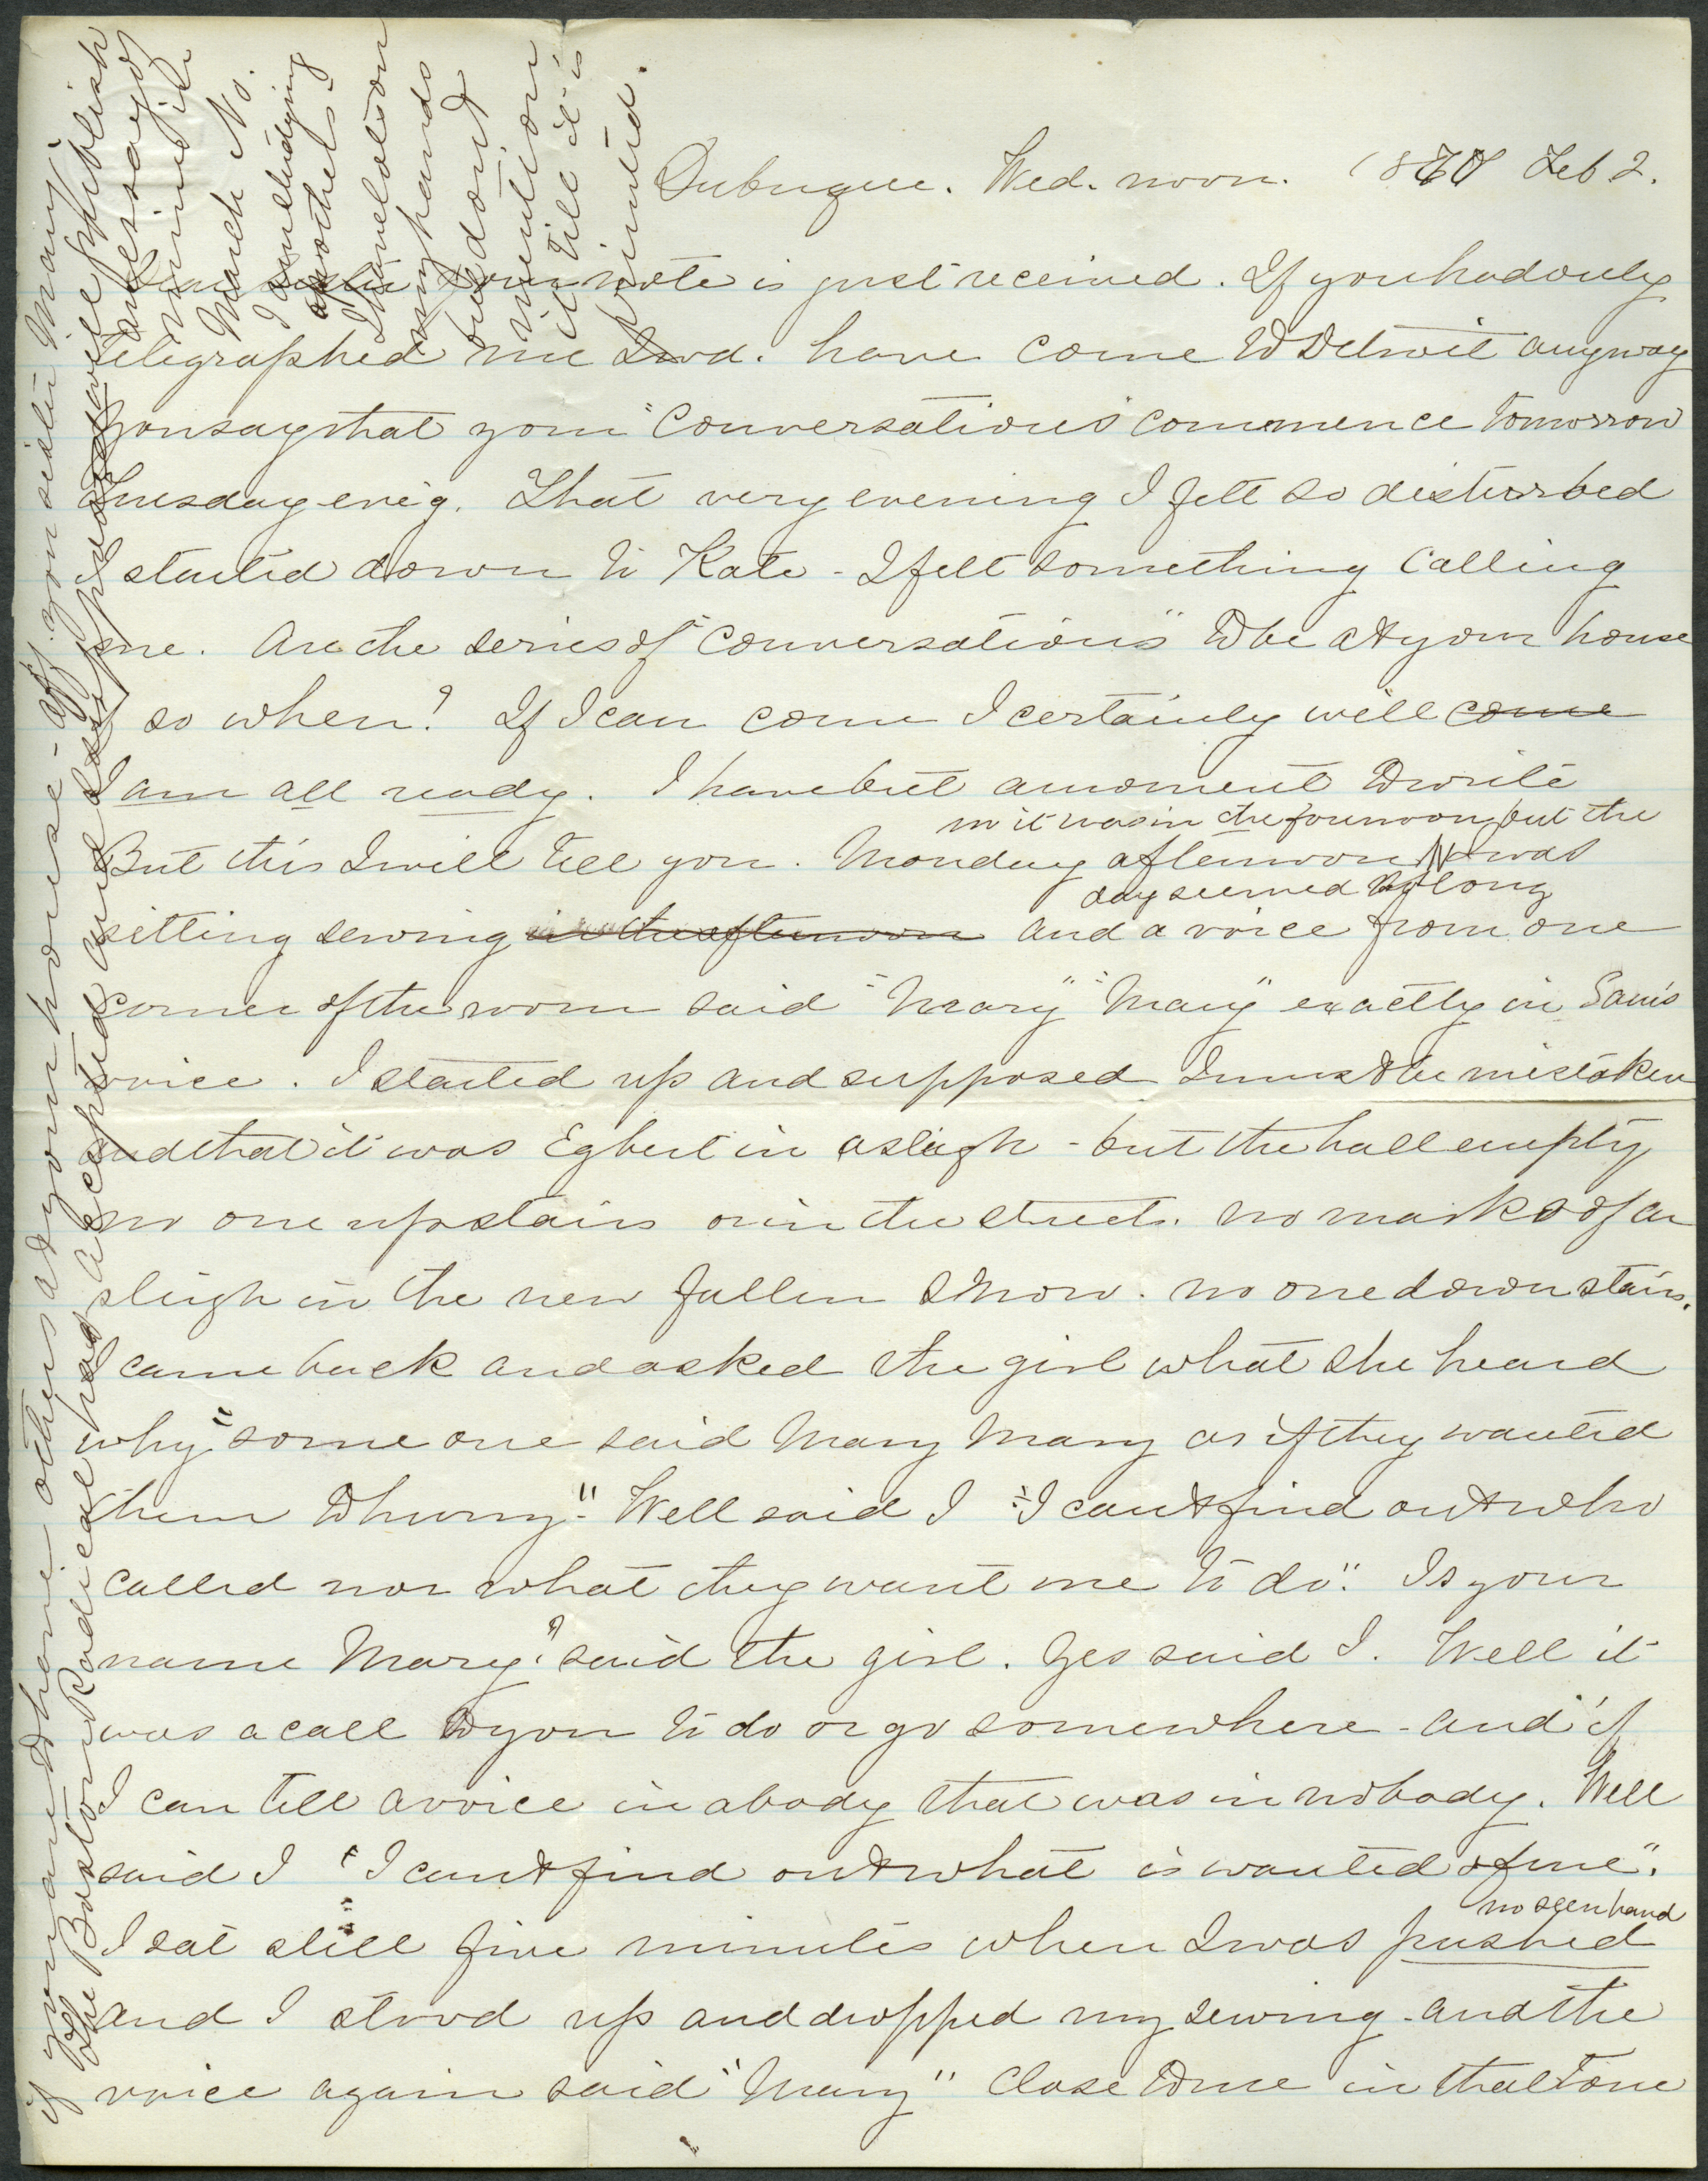 Dubuque. Wed. noon. 1870 Feb 2.
Dear sister Your note is just received. If you had only
telegraphed me I wd. have come to Detroit anyway
You say that your "Conversations" commence tomorrow
Tuesday evig. That very evening I felt so disturbed
I started down to Kate - I felt something calling
me. Are the series of "Conversations" to be at your house
if so when? If I can come I certainly will come
I am all ready. I have but a moment to write
no it was in the forenoon but the
But this I will tell you. Monday afternoon I was
day seemed so long
sitting sewing in the afternoon and a voice from one
corner of the room said "Mary" "Mary" exactly in Sam's
voice. I started up and supposed I must be mistaken
and that it was Egbert in a sleigh - but the hall empty
no one upstairs or in the street. no marks of a
sleigh in the new fallen snow. no one down stairs.
I came back and asked the girl what she heard
why "some one said Mary Mary as if they wanted
them to hurry". Well said I "I can't find out who
called nor what they want me to do". Is your
name Mary?" said the girl. Yes said I. Well it
was a call to you to do or go somewhere - and if
I can tell a voice in a body that was in no body. Well
said I "I can't find out what is wanted of me".
no seen hand
I sat still five minutes when I was pushed
and I stood up and dropped my sewing - and the
voice again said "Mary" close to me in that tone
if you and have others at your house - Aff. your sister Mary
The Boston Radical has accepted and
will publish
an essay of
mine in
March No.
I am studying
another.
I have lots on
my hands
but don't
mention
it till it is
printed.